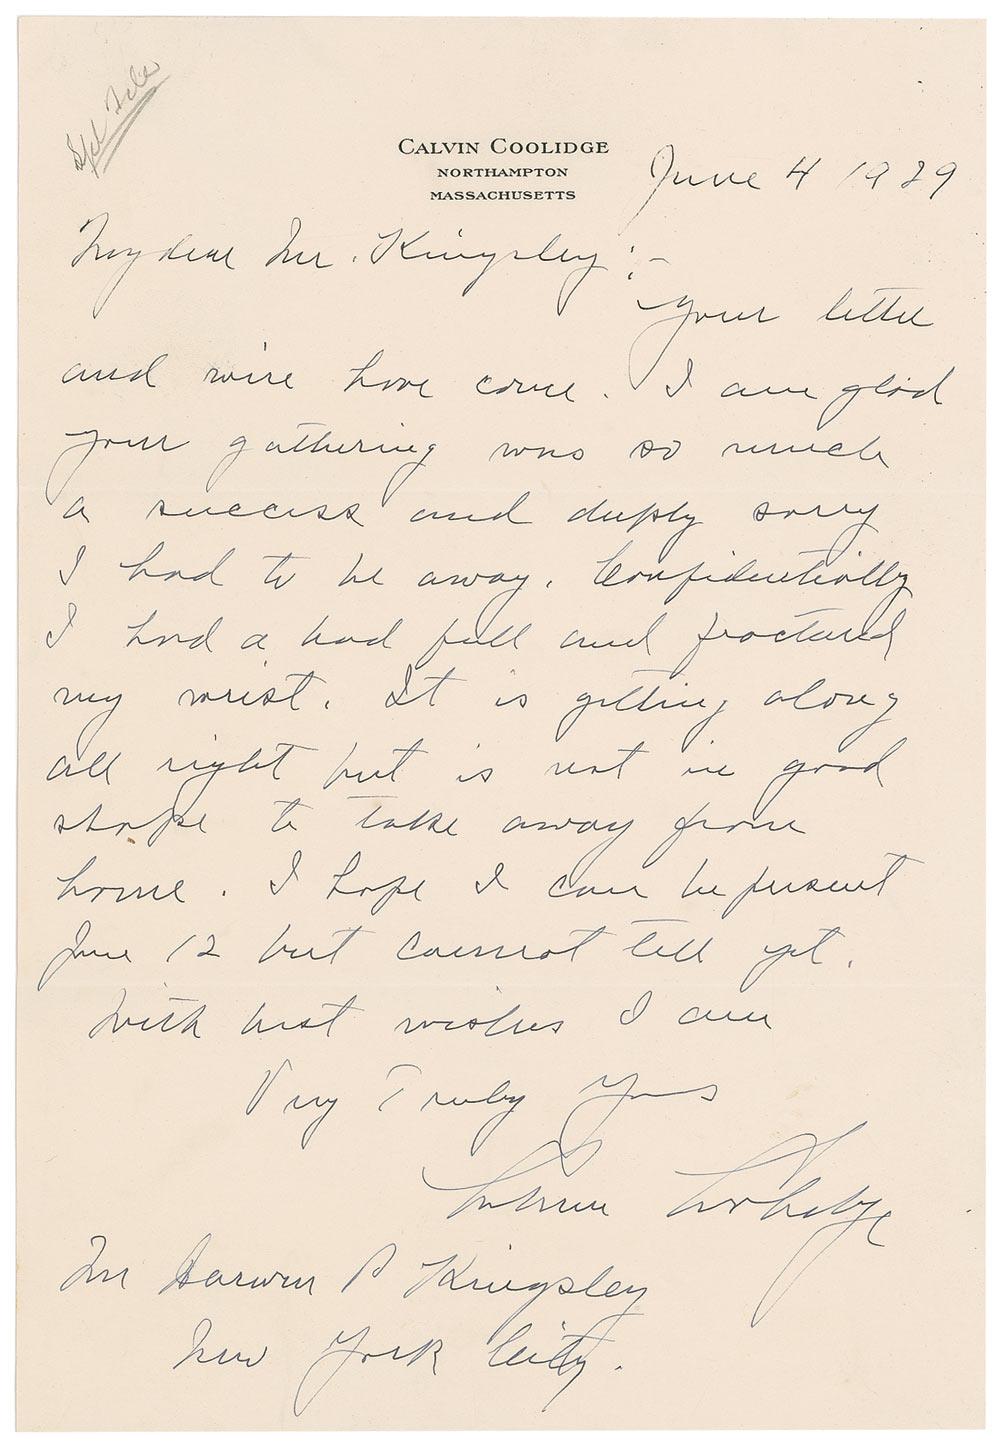 Spl File
CALVIN COOLIDGE
NORTHAMPTON
MASSACHUSETTS
June 4 1929
My dear Mr. Kingsley:-
Your letter
and wire have come. I am glad
your gathering was so much
a success and deeply sorry
I had to be away. Confidentially
I had a bad fall and fractured
my wrist. It is getting along
all right but is not in good
shape to take away from
home. I hope I can be present
June 12 but cannot tell yet.
With best wishes I am
Very Truly Yours
Calvin Coolidge
Mr Darwin P Kingsley
New York City.